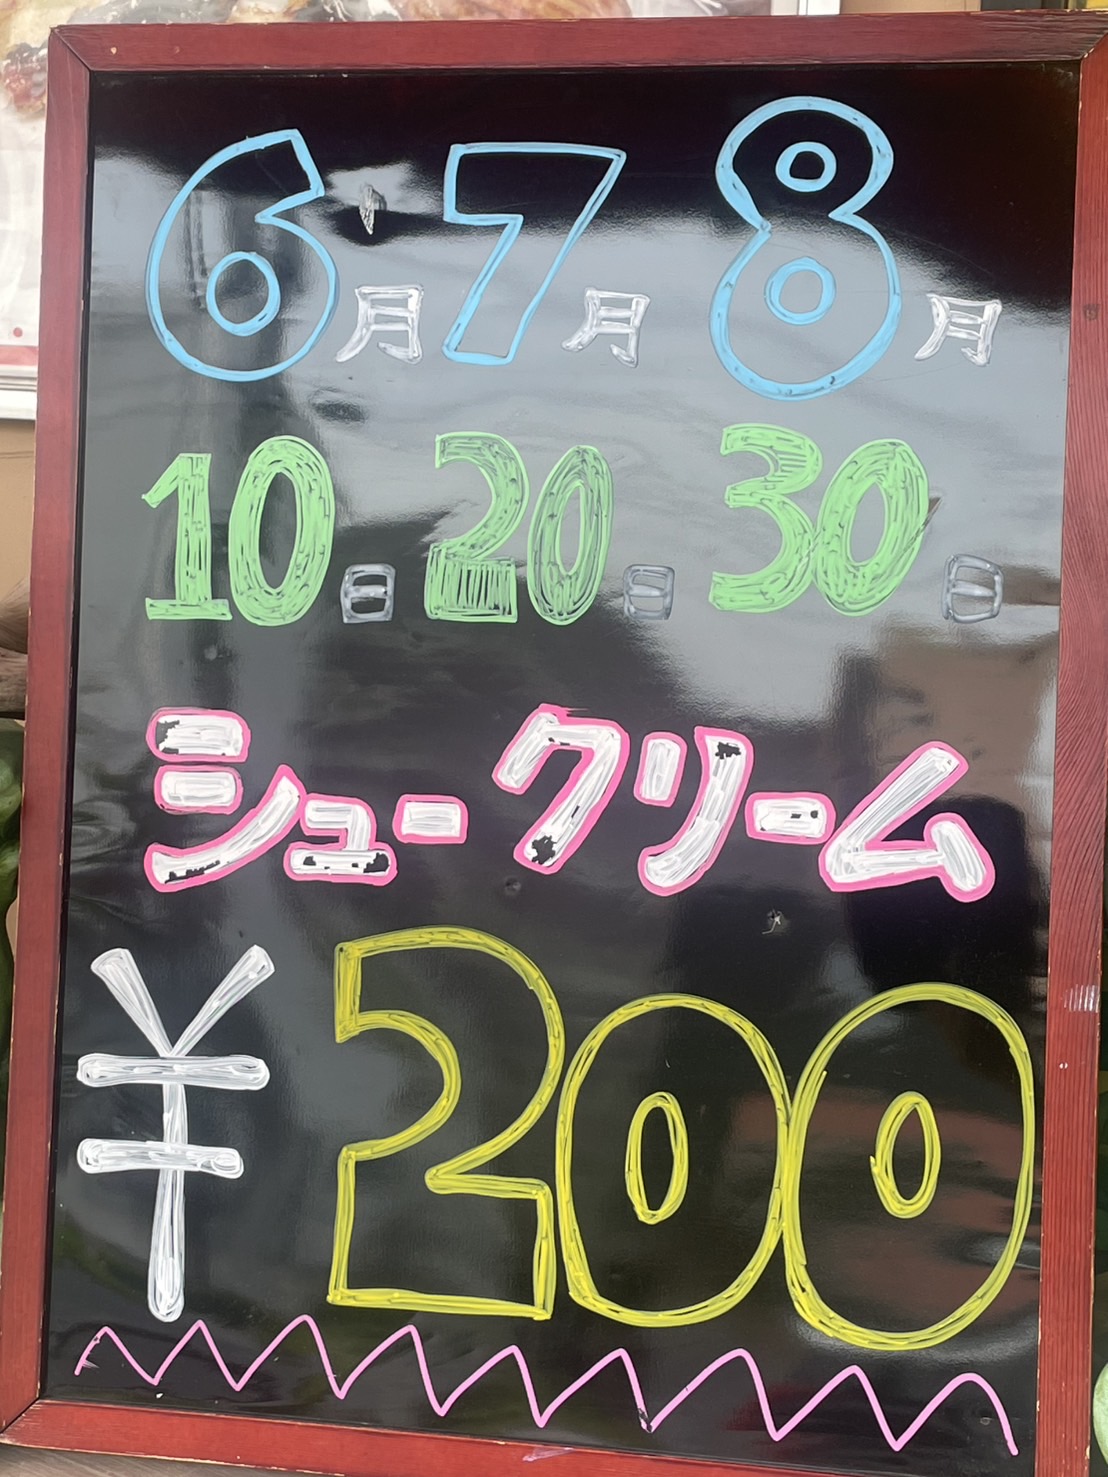 6月7月8月
10日20日30日
シュークリーム
¥200